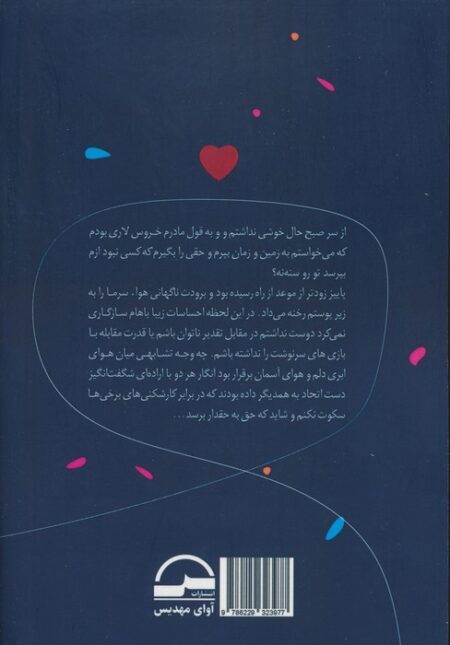 از سر صبح حال خوشی نداشتم و و به قول مادرم خروس لاری بودم
که می‌خواستم به زمین و زمان بپرم و حقی را بگیرم که کسی نبود ازم
بپرسد تو رو سنه‌نه؟
پاییز زودتر از موعد از راه رسیده بود و برودت ناگهانی هوا، سرما را به
زیر پوستم رخنه می‌داد. در این لحظه احساسات زیبا باهام سازگاری
نمی‌کرد دوست نداشتم در مقابل تقدیر ناتوان باشم یا قدرت مقابله با
بازی های سرنوشت را نداشته باشم. چه وجه تشابهی میان هوای
ابری دلم و هوای آسمان برقرار بود انگار هر دو با اراده‌ای شگفت‌انگیز
دست اتحاد به همدیگر داده بودند که در برابر کارشکنی‌های برخی‌ها
سکوت نکنم و شاید که حق به حقدار برسد...
انتشارات
آوای مهدیس
9 786229 323977